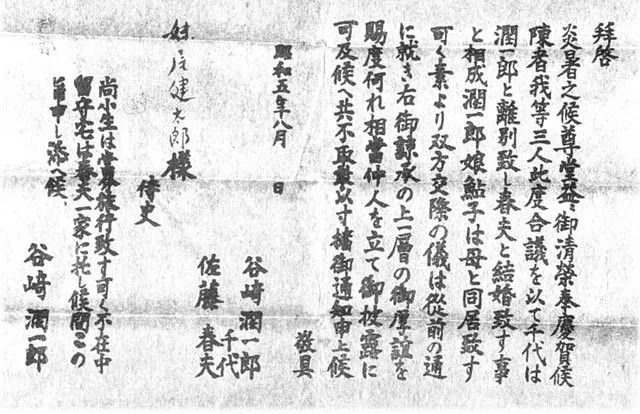 拝啓
炎暑之候尊堂益々御清栄奉慶賀候
陳者我等三人此度合議を以て千代は
潤一郎と離別致し春夫と結婚致す事
と相成潤一郎娘鮎子は母と同居致す
可く素より双方交際の儀は従前の通
に就き右御諒承の上一層の御厚誼を
賜度何れ相当仲人を立て御披露に
可及候へ共不取敢以寸楮御通知申上候
敬具
谷崎潤一郎
千代
佐藤春夫
昭和五年八月 日
妹尾健太郎様
侍史
尚小生は当分旅行致す可く不在中
留守宅は春夫一家に托し候間この
旨申し添へ候
谷崎潤一郎